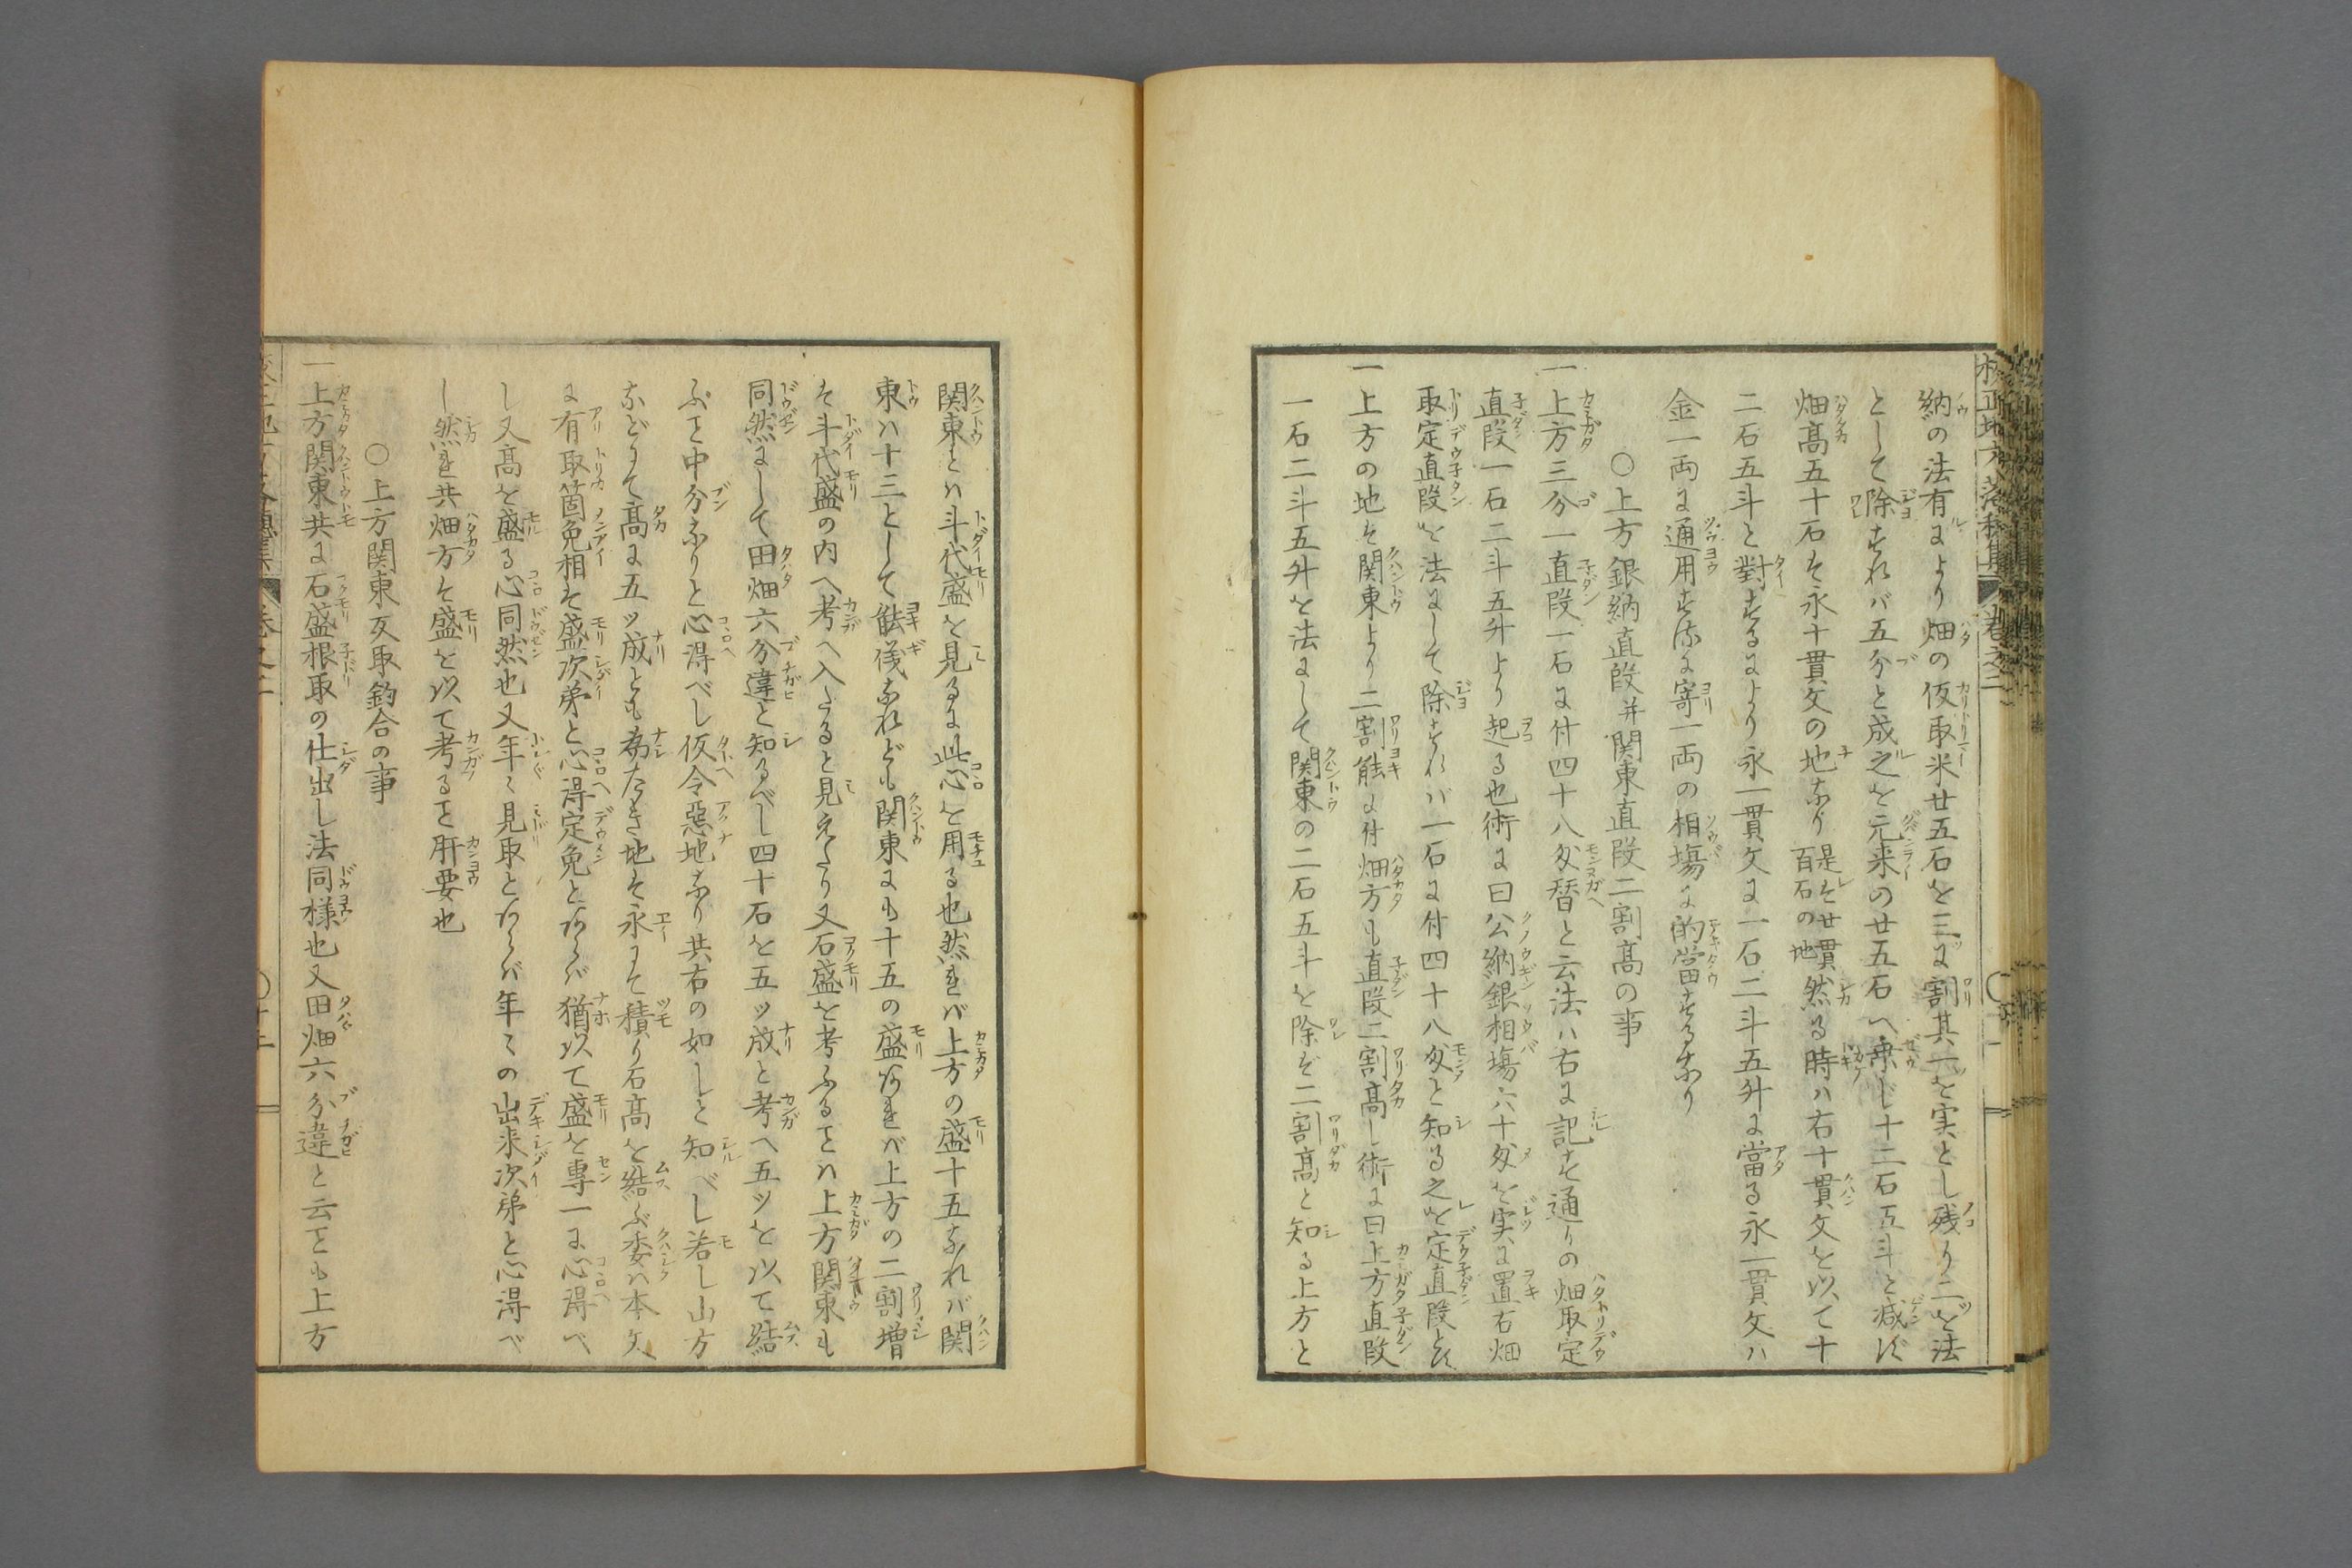 校正地方落穂集 巻之二
納の法有により畑の仮取米廿五石を三に割其一を実とし残り二を法
として除すれバ五分と成之を元来の廿五石へ乗じ十二石五斗と減ず
畑高五十石を永十貫文の地なり是を廿貫百石の地然る時ハ右十貫文を以て十
二石五斗と對するにより永一貫文に一石二斗五升に當る永一貫文ハ
金一両に通用する故に寄一両の相場に的當するなり
○上方銀納直段并関東直段二割高の事
一上方三分一直段一石に付四十八匁替と云法ハ右に記す通りの畑取定
直段一石二斗五升より起る也術に曰公納銀相場六十匁を実に置右畑
取定直段を法にして除すれバ一石に付四十八匁と知る之を定直段とす
一上方の地を関東より二割能に付畑方も直段二割高し術に曰上方直段
一石二斗五升を法にして関東の二石五斗を除ぞ二割高と知る上方と
関東とハ斗代盛を見るに此心を用る也然れバ上方の盛十五なれバ関
東ハ十三として能儀なれども関東にも十五の盛あれバ上方の二割増
を斗代盛の内へ考へ入たると見えたり又石盛を考ふるとハ上方関東も
同然にして田畑六分違と知るべし四十石を五ツ成と考へ五ツを以て結
ぶと中分なりと心得べし仮令惡地なり共右の如しと知べし若し山方
などにて高に五ツ成とも為たき地を永にて積り石高を結ぶ委ハ本文
に有取箇免相を盛次第と心得定免とあらバ猶以て盛を専一に心得べ
し又高を盛る心同然也又年々見取とあらバ年々の出来次第と心得べ
し然れ共畑方を盛を以て考ると肝要也
○上方関東反取釣合の事
一上方関東共に石盛根取の仕出し法同様也又田畑六分違と云とも上方